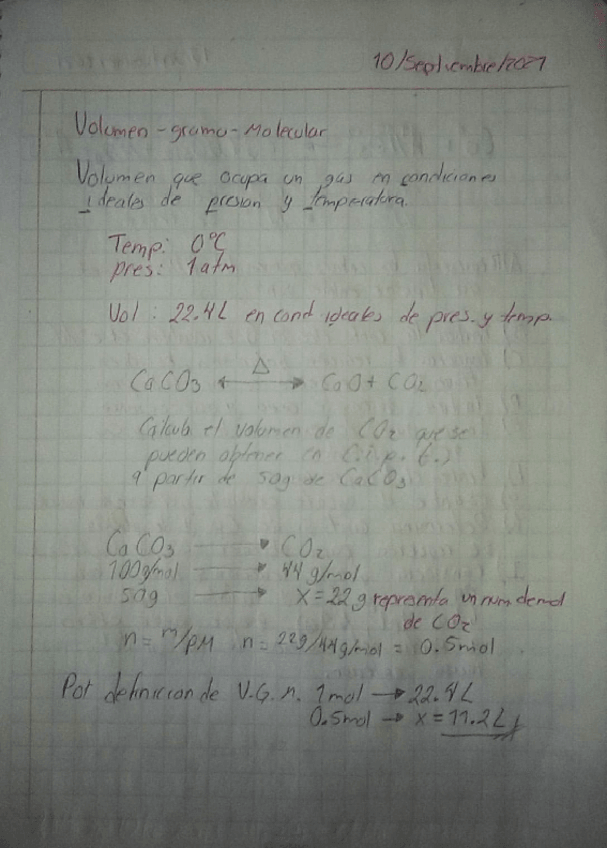 10/Septiembre/2021
Volumen-gramo-Molecular
Volumen que ocupa un gas en condiciones
ideales de presion y temperatura.
Temp: 0°C
pres: 1 atm
Vol: 22.4L en cond ideales de pres. y temp.
Δ
CaCO3 ⟷ CaO + CO2
Calcula el volumen de CO2 que se
pueden obtener en C.i.p.t.)
a partir de 50g de CaCO3
CaCO3 → CO2
100g/mol → 44 g/mol
50g → x=22g representa un num de mol
de CO2
n= m/PM n= 22g/44g/mol = 0.5mol
Por definicion de V.G.M. 1mol → 22.4L
0.5mol → x=11.2L